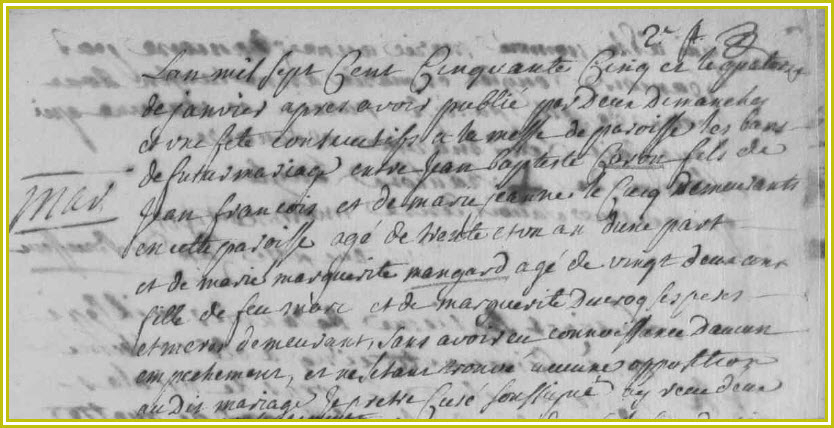 Lan mil sept Cent Cinquante Cinq et le quatorze
de janvier apres avoir publié par Deux Dimanches
et vne fete consecutifs a la messe de paroisse les bans
de futur mariage entre Jean baptiste Caron fils de
mar.
Jean francois et de marie jeanne le Cucq demeurants
en cette paroisse agé de trente et vn an dune part
et de marie marguerite mangard agé de vingt deux ans
fille de feu marc et de marguerite Ducrocq ses peres
et meres demeurant, sans avoir eu connoissance daucun
empechement, et ne setant trouvé aucune opposition
au Dit mariage Je prestre Curé soussigné ay receu deux